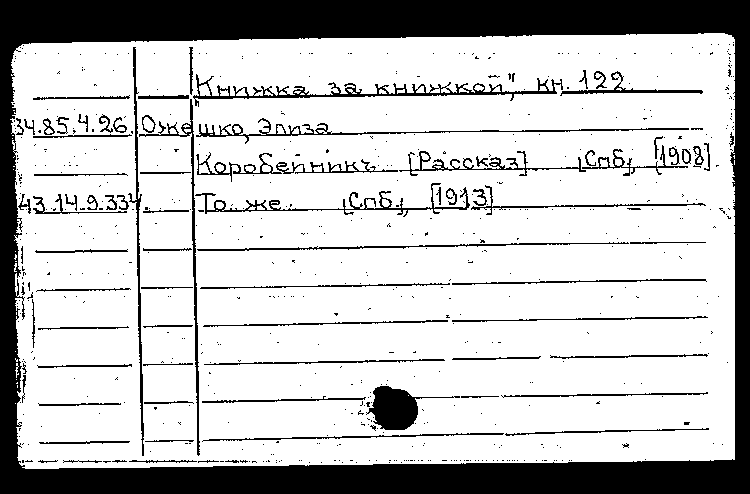 "Книжка за книжкой", кн. 122.
34.85.4.26. Ожешко, Элиза
Коробейникъ. [Рассказ] [Спб], [1908].
43.14.9.334. То же. [Спб.], [1913]